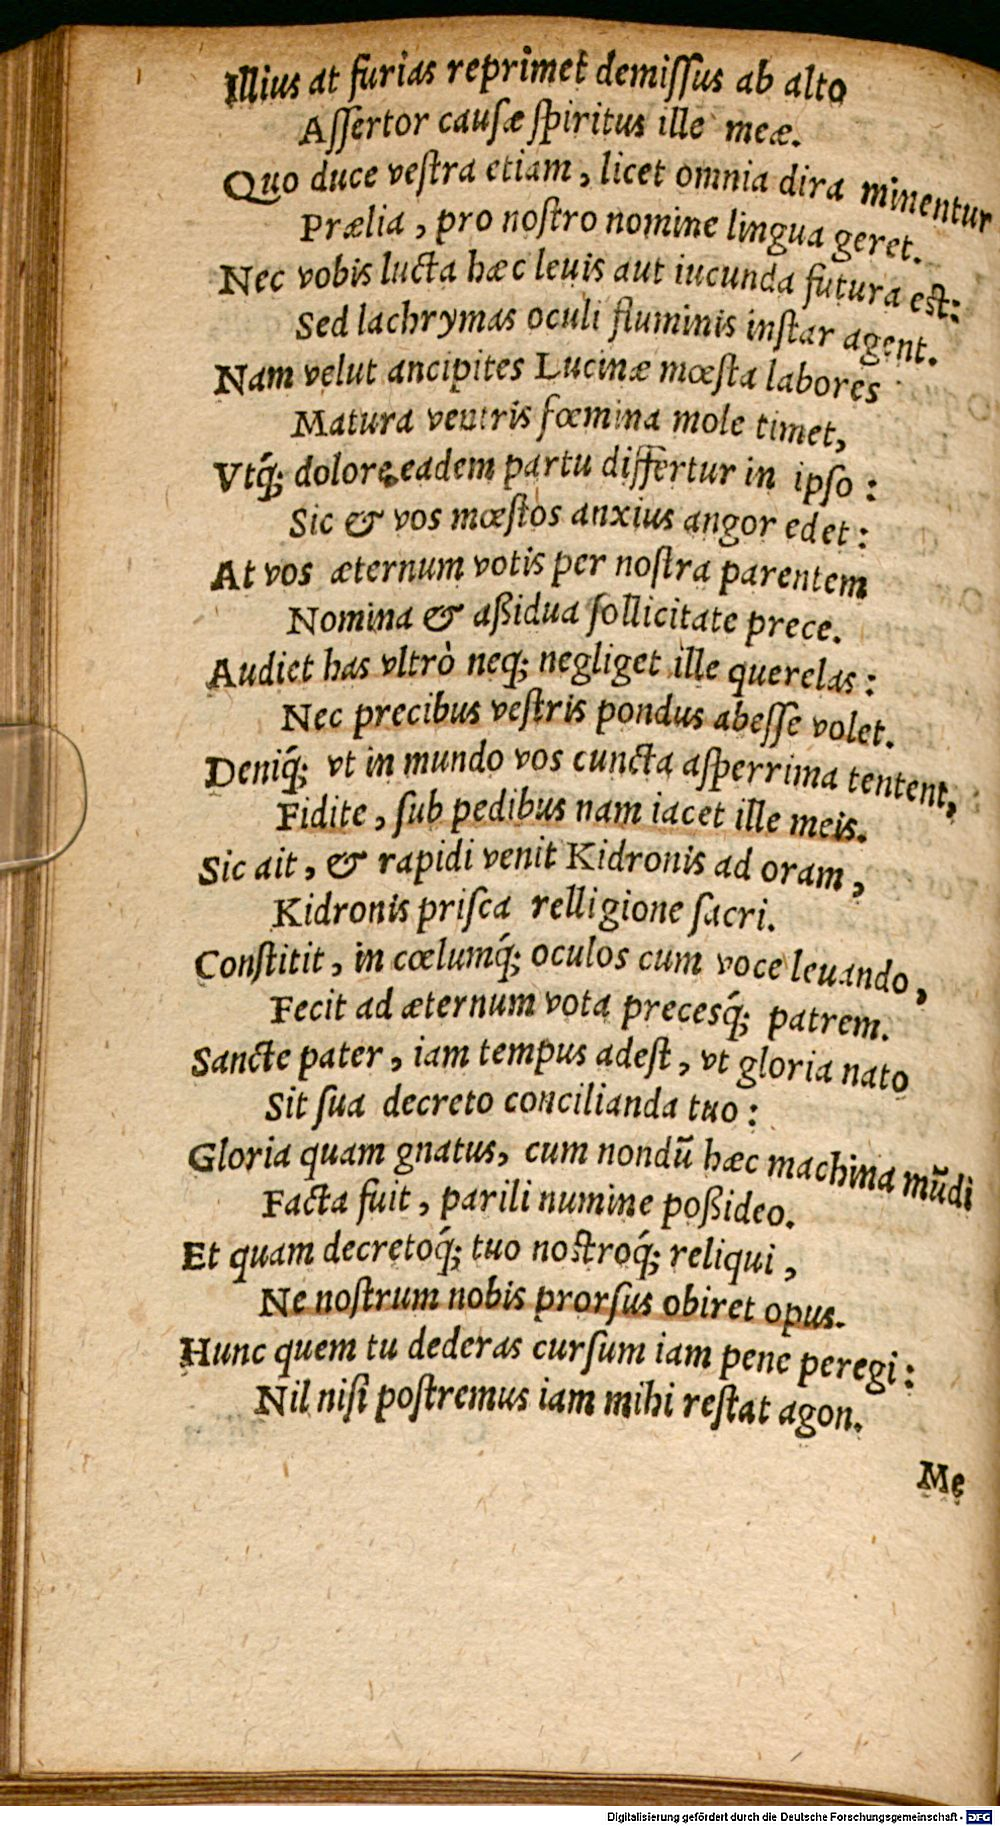 Illius at furias reprimet demiſſus ab alto
Aſſertor cauſæ ſpiritus ille meæ.
Quo duce veſtra etiam, licet omnia dira minentur
Prælia, pro noſtro nomine lingua geret.
Nec vobis lucta hæc leuis aut iucunda futura eſt:
Sed lachrymas oculi fluminis inſtar agent.
Nam velut ancipites Lucinæ mœſta labores
Matura ventris fœmina mole timet,
Vtq́; dolore eadem partu differtur in ipſo:
Sic & vos mœſtos anxius angor edet:
At vos æternum votis per noſtra parentem
Nomina & aßidua ſollicitate prece.
Audiet has vltrò neq; negliget ille querelas:
Nec precibus veſtris pondus abeſſe volet.
Deniq́; vt in mundo vos cuncta aſperrima tentent,
Fidite, ſub pedibus nam iacet ille meis.
Sic ait, & rapidi venit Kidronis ad oram,
Kidronis priſca relligione ſacri.
Conſtitit, in cœlumq́; oculos cum voce leuando,
Fecit ad æternum vota precesq́; patrem.
Sancte pater, iam tempus adeſt, vt gloria nato
Sit ſua decreto concilianda tuo:
Gloria quam gnatus, cum nondū hæc machina mūdi
Facta fuit, parili numine poßideo.
Et quam decretoq́; tuo noſtroq́; reliqui,
Ne noſtrum nobis prorſus obiret opus.
Hunc quem tu dederas curſum iam pene peregi:
Nil niſi poſtremus iam mihi reſtat agon.
Me
Digitalisierung gefördert durch die Deutsche Forschungsgemeinschaft - DFG